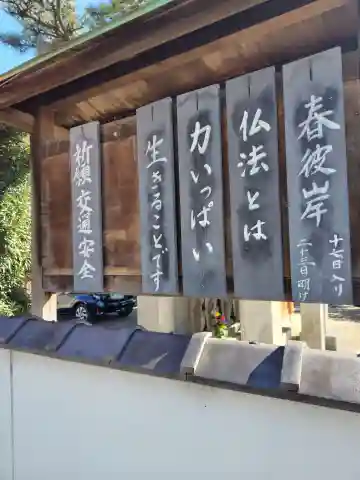 春彼岸
十七日入り
二十三日明け
仏法とは
力いっぱい
生きることです
祈願交通安全